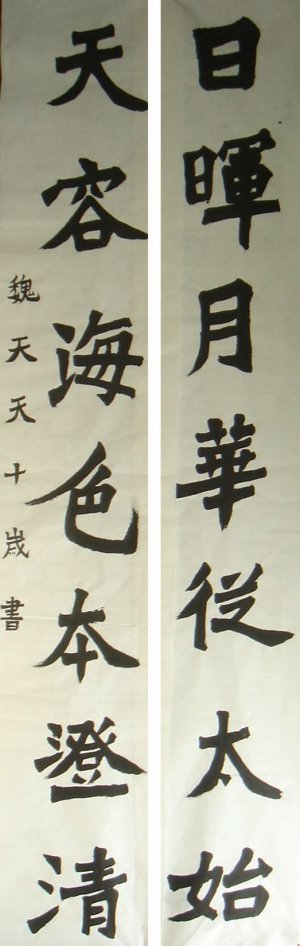 日暉月華從太始
天容海色本澄清
魏天天十歲書